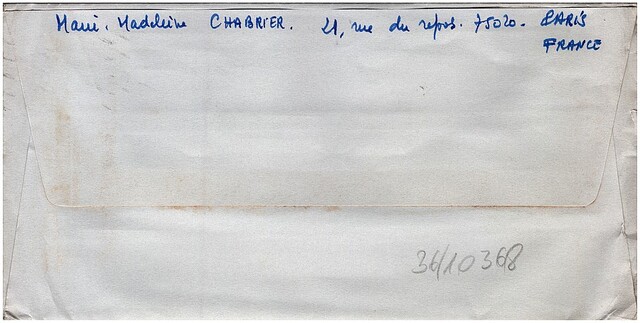 Marie. Madeleine CHABRIER. 21, rue du repos. 75020. PARIS
FRANCE
36/10368